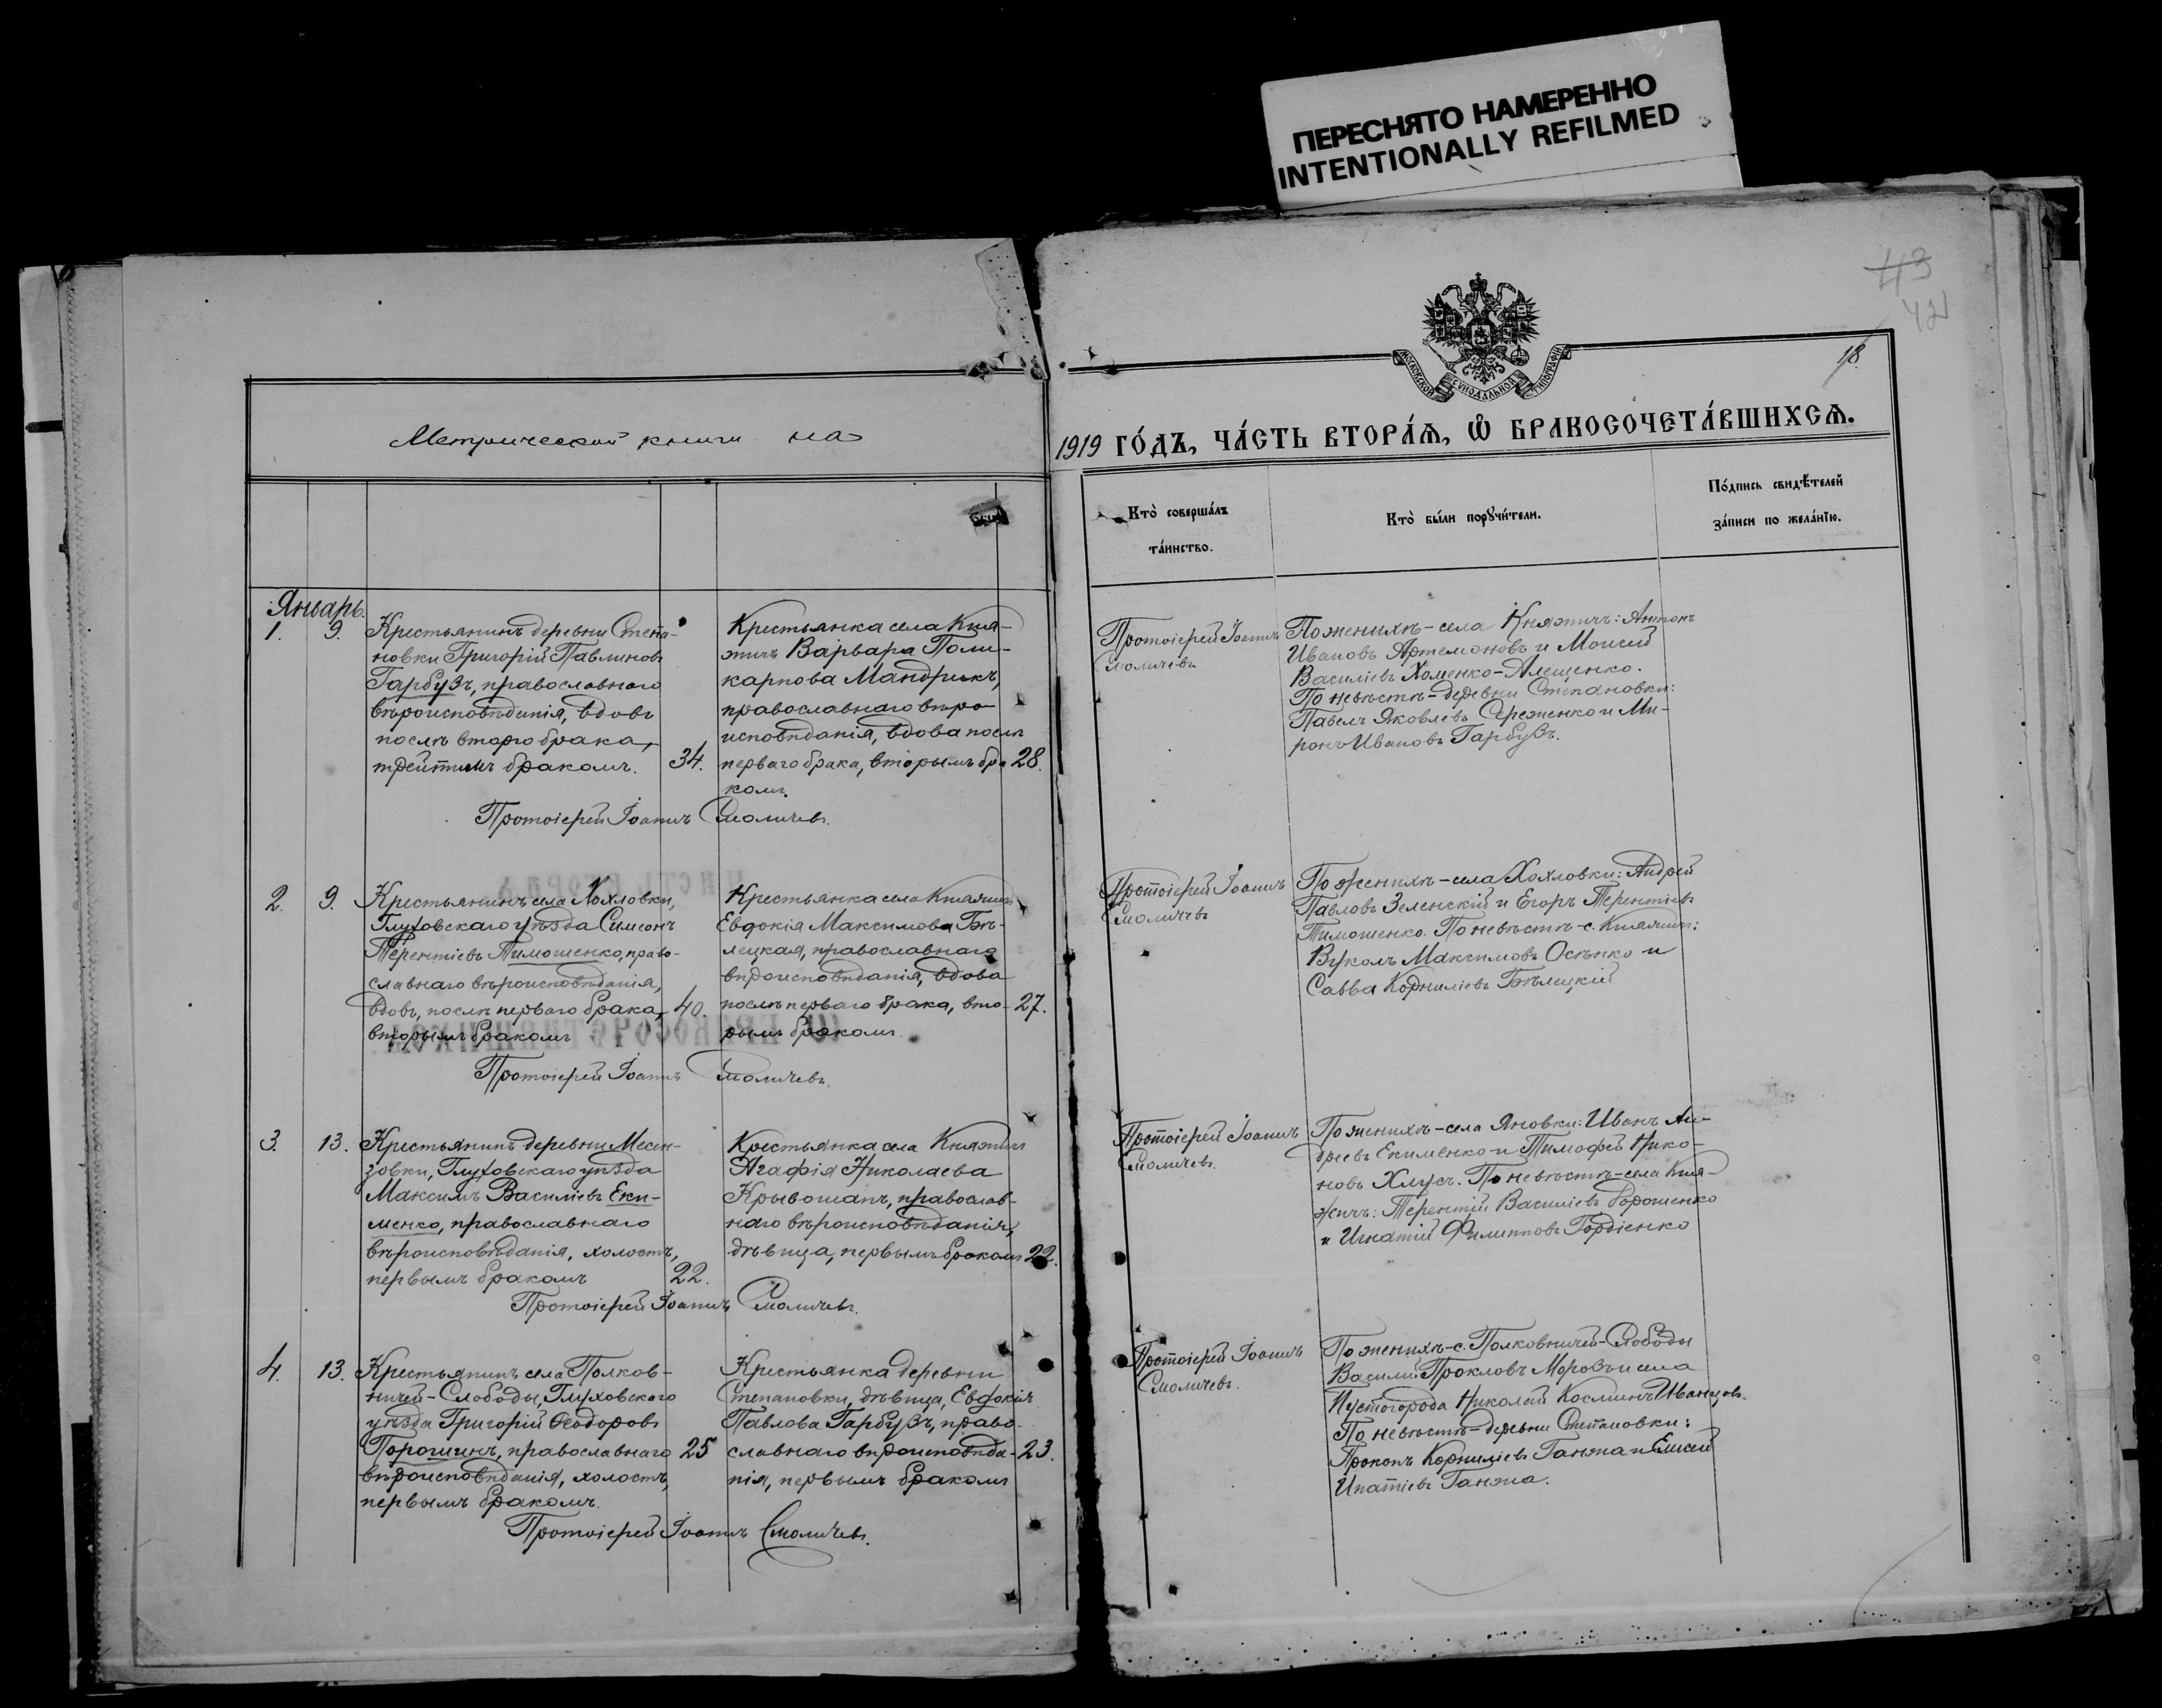 ПЕРЕСНЯТО НАМЕРЕННО
INTENTIONALLY REFILMED
43
42
18.
МОСКОВСКОЙ СѴНОДАЛЬНОЙ ТИПОГРАФІИ
Метрической книги на
1919 го́дъ, ча́сть втора́ѧ, ѡ҆ бракосочета́вшихсѧ.
Кто̀ соверша́лъ
та́инство.
Кто̀ бы́ли порꙋчи́тели.
По́дпись свидѣ́телей
за́писи по жела́нїю.
Январь.
1. 9.
Крестьянинъ деревни Степа-
новки Григорій Павлиновъ
Гарбузъ, православнаго
вѣроисповѣданія, вдовъ
послѣ второго брака,
третьимъ бракомъ. 34.
Крестьянка села Кня-
жичъ Варвара Поли-
карпова Мандрикъ,
православнаго вѣро-
исповѣданія, вдова послѣ
перваго брака, вторымъ бра 28.
комъ.
Протоіерей Іоаннъ Смоличевъ.
Протоіерей Іоаннъ
Смоличевъ
По женихѣ - села Княжичъ: Антонъ
Ивановъ Артемоновъ и Моисей
Василіевъ Хоменко-Алещенко.
По невѣстѣ - деревни Степановки:
Павелъ Яковлевъ Сереженко и Ми-
ронъ Ивановъ Гарбузъ.
2. 9.
Крестьянинъ села Хохловки,
Глуховскаго уѣзда Симеонъ
Терентіевъ Тимошенко, право-
славнаго вѣроисповѣданія,
вдовъ, послѣ перваго брака, 40.
вторымъ бракомъ
Крестьянка села Княжичъ
Евдокія Максимова Бѣ-
лецкая, православнаго
вѣроисповѣданія, вдова
послѣ перваго брака, вто- 27.
рымъ бракомъ.
Протоіерей Іоаннъ Смоличевъ.
Протоіерей Іоаннъ
Смоличевъ
По женихѣ - села Хохловки: Андрей
Павловъ Зеленскій и Егоръ Терентіевъ
Тимошенко. По невѣстѣ - с. Княжичъ:
Вуколъ Максимовъ Осѣнко и
Савва Корниліевъ Бѣлицкій
3. 13.
Крестьянинъ деревни Месен-
зовки, Глуховскаго уѣзда
Максимъ Василіевъ Еки-
менко, православнаго
вѣроисповѣданія, холостъ,
первымъ бракомъ 22.
Крестьянка села Княжичъ
Агафія Николаева
Крывошапъ, православ-
наго вѣроисповѣданія,
дѣвица, первымъ бракомъ 22.
Протоіерей Іоаннъ Смоличевъ.
Протоіерей Іоаннъ
Смоличевъ.
По женихѣ - села Яновки: Иванъ Ан-
дреевъ Екименко и Тимофей Нико-
новъ Хлусъ. По невѣстѣ - села Кня-
жичъ: Терентій Василіевъ Дорошенко
и Игнатій Филипповъ Гордіенко
4. 13.
Крестьянинъ села Полков-
ничей-Слободы, Глуховскаго
уѣзда Григорій Ѳеодоровъ
Порошинъ, православнаго 25
вѣроисповѣданія, холостъ,
первымъ бракомъ.
Крестьянка деревни
Степановки, дѣвица, Евдокія
Павлова Гарбузъ, право-
славнаго вѣроисповѣда- 23.
нія, первымъ бракомъ
Протоіерей Іоаннъ Смоличевъ.
Протоіерей Іоаннъ
Смоличевъ.
По женихѣ - с. Полковничей-Слободы
Василій Прокловъ Морозъ и села
Пустогорода Николай Космінъ Иванцовъ.
По невѣстѣ - деревни Степановки:
Прокопъ Корниліевъ Ганжа и Елисей
Ипатіевъ Ганжа.